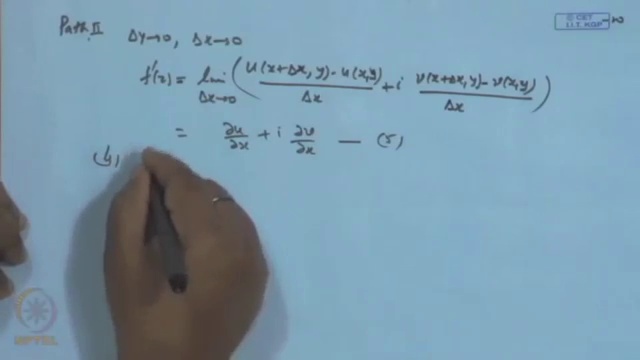 © CET
I.I.T. KGP
Path II Δy→0, Δx→0
f'(z) = lim Δx→0 ( u(x+Δx, y) - u(x,y) / Δx + i v(x+Δx, y) - v(x,y) / Δx )
= ∂u/∂x + i ∂v/∂x — (5)
(4)
NPTEL